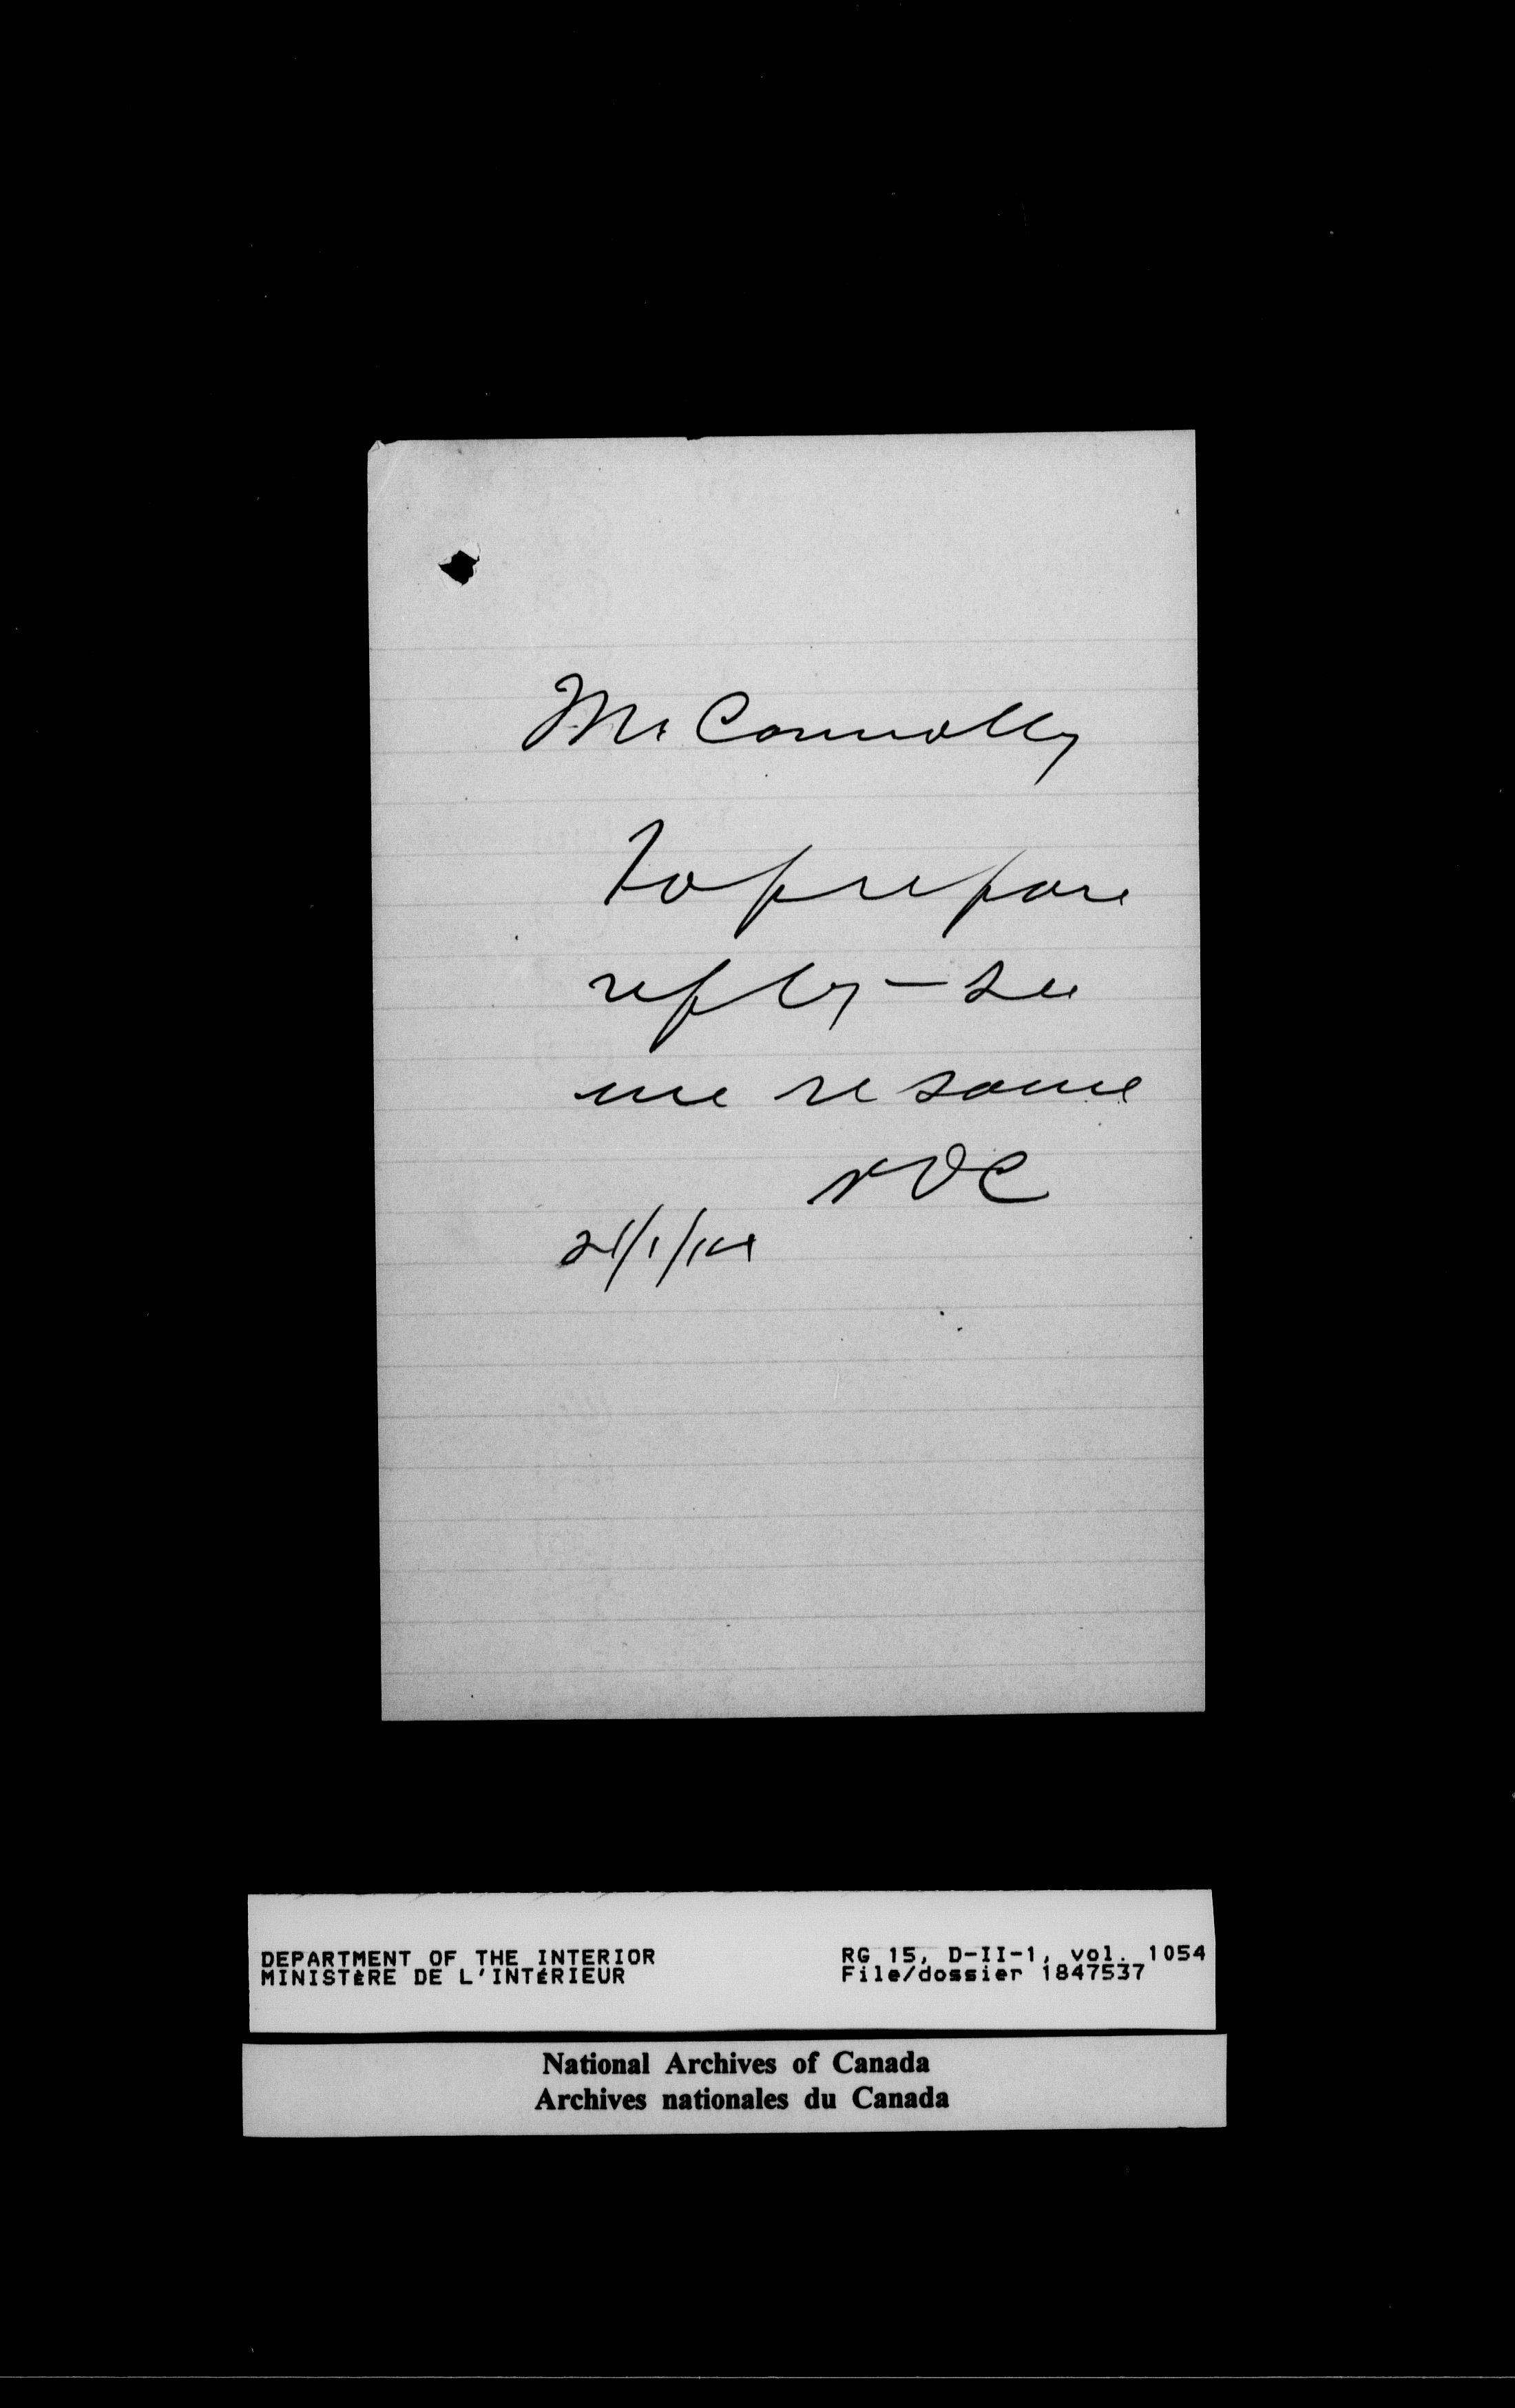 Mr Connolly
to prepare
reply — see
me re same
21/1/14
DEPARTMENT OF THE INTERIOR
MINISTÈRE DE L'INTÉRIEUR
RG 15, D-II-1, vol. 1054
File/dossier 1847537
National Archives of Canada
Archives nationales du Canada